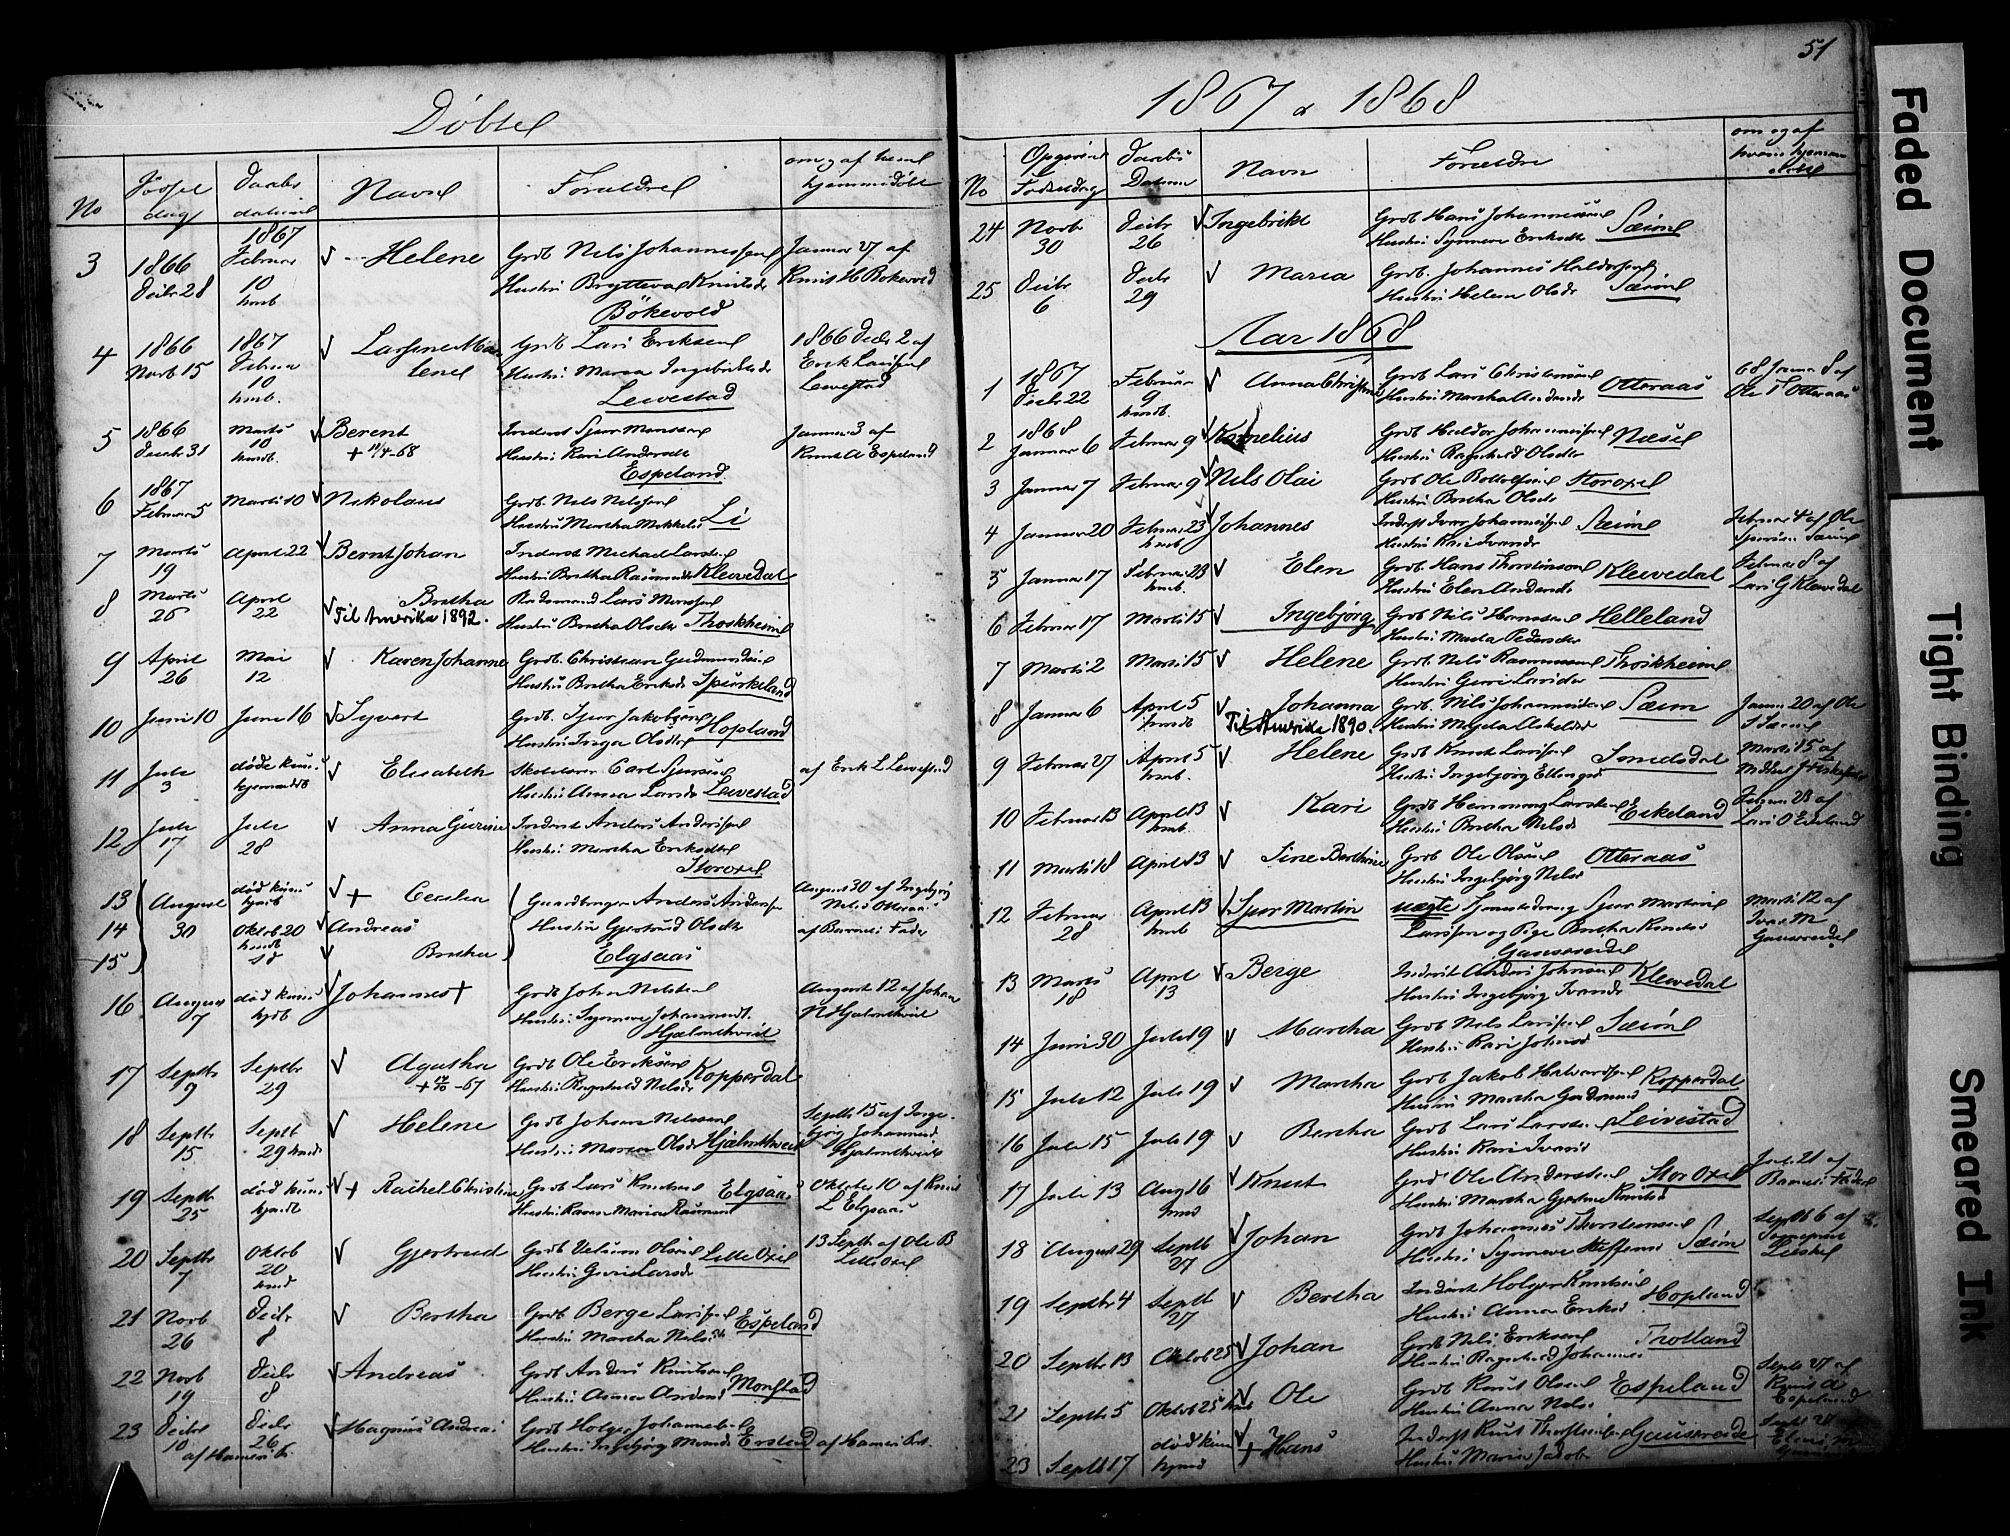 Döbte
No
Födsel
dag
Daabs
datum
Navn
Forældre
om og af hvem
hjemmedöbt
3
1866
Decbr 28
1867
Februar
10
hmb
Helene
Grdb Nils Johannessen
Hustru Brytteva Knutsdt
Bökevold
Januar 27 af
Knut H Bökevold
4
1866
Novb 15
1867
Februar
10
hmb.
Larsine Ma
lene
Grdb Lars Eriksen
Hustru Maria Ingebrikts
Levestad
1866 Decbr 2 af
Erik Larsen
Levestad
5
1866
Decbr 31
Marts
10
hmdb.
Berent
+ 11/4-68
Inderst Sjur Monsen
Hustru Kari Andersdt
Espeland
Januar 3 af
Knut A Espeland
6
1867
Februar 5
Marts 10
Nikolaus
Grdb Nils Nilsen
Hustru Martha Mikkelsd
Li
7
Marts
19
April 22
Bernt Johan
Inderst Michael Larsen
Hustru Bretha Rasmusdt Klevedal
8
Marts
26
April
22
Bretha
Til Amerika 1892.
Lars Monsen
Hustru Bretha Olsdtr Thoskheim
9
April
26
Mai
12
Karen Johanne
Grdb. Christian Gudmundsen
Hustru Bretha Eriksdt Spurkeland
10
Juni 10
Juni 16
Syvert
Grdb. Sjur Jakobsen
Hustru Inga Olsdtr Hopland
11
Jule
3
døde kun
hjemmedöbt
Elisabeth
Skolelærer Carl Sjursen
Hustru Anna Larsdt Levestad
af Erik L Levestad
12
Jule
17
Jule
28
Anna Gurine
Inderst Anders Andersen
Hustru Martha Eriksdtr
Storoxel
13
14
15
August
30
död kun
hjdb
Oktob 20
hmdt
Cecilia
Andreas
Bretha
Gaardbruger Anders Andersen
Hustru Gjertrud Olsdt
Elgsaas
August 30 af Ingebjörg
Nilsd Otteraas
af Barnets Fader
16
August
7
död kun
hjdb
Johannes +
Grdb John Nilsen
Hustru Synneve Johannesdt.
Hjelmtveit
August 12 af Johan
N Hjelmtveit
17
Septbr
9
Septbr
29
Agatha
Grdb Ole Eriksen
Hustru Ragnhild Nilsdt Kopperdal
18
Septbr
15
Septb
29 hmdt
Helene
Grdb Johan Nilssen
Hustru Maria Olsdt Hjelmtveit
Septbr 15 af Inge-
björg Johannesd
Hjelmtveit
19
Septbr
25
död kun
hjmdt
+ Rachel Christine
Grdb Lars Knudsen Elgsaas
Hustru Karen Maria Rasmusd
Oktober 10 af Knut
L Elgsaas
20
Septbr
7
Oktob
20
hmd
Gjertrud
Grdb Vilum Olsen Lille Oxel
Hustru Guri Larsdt
13 Septbr af Ole B
Lille Oxel
21
Novb
26
Decbr
8
Bertha
Grdb Berge Larsen Espeland
Hustru Martha Nilsdt
22
Novb
19
Decbr
8
Andreas
Grdb Anders Knutsen
Hustru Anna Andersd Monstad
23
Decbr
10
Decbr
26
af Hameri K.
Magnus Andreas
Grdb Holger Johannesen
Hustru Ingebjörg Monsdt Erstad
af Hameri Kst.
51
1867 & 1868
No
Opgiven
Födselsdag
Daabs
Datum
Navn
Forældre
om og af
hvem hjemme
döbt
24
Novb
30
Decbr
26
Ingebrikt
Grdb Hans Johannessen Sæim
Hustru Synneve Eriksdtr
25
Decbr
6
Decbr
29
Maria
Grdb. Johannes Haldorsen
Hustru Helene Olsdt Sæim
Aar 1868
1
1867
Decbr 22
Februar
9
hmdt.
Anna Christine
Grdb Lars Christensen Otteraas
Hustru Martha Andersdt
68 Januar 8 af
Ole T Otteraas
2
1868
Januar 6
Februar 9
Kornelius
Grdb Haldor Johannessen Næse
Hustru Ragnhild Olsdtr
3
Januar 7
Februar 9
Nils Olai
Grdb Ole Bottolfsen Storoxel
Hustru Bretha Olsdt
4
Januar 20
Februar 23
hmb
Johannes
Inderst Ivar Johannessen Sæim
Hustru Kari Ivarsdt
Februar 4 af Ole
Sjursen Sæim
5
Januar 17
Februar 23
hmb.
Elen
Grdb. Hans Thorstensen Klevedal
Hustru Elen Andersdt
Februar 8 af
Lars G Klevedal
6
Februar 17
Marts 15
Ingebjörg
Grdb Nils Hansen Helleland
Hustru Marta Pedersdtr
7
Marts 2
Marts 15
Helene
Grdb. Nils Rasmussen Thoskheim
Hustru Guri Larsdtr
8
Januar 6
April 5
hmdt
Johanna
Til Amerika 1890.
Grdb. Nils Johannessen Sæim
Januar 20 af Ole
S Sæim
9
Februar 27
April 5
hmb.
Helene
Grdb Knut Larsen Smedsdal
Hustru Ingebjörg Ellingsd
Marts 15 af
10
Februar 13
April 13
hmb.
Kari
Grdb Hemming Larsen Eikeland
Hustru Bretha Nilsd
Februar 23 af
Lars O Eikeland
11
Marts 18
April 13
Sine Berthine
Grdb Ole Olsen Otteraas
Hustru Ingebjörg Nilsd
12
Februar
28
April 13
hmb
Sjur Martin
uægte Sjur Martin
Larsen og Pige Bretha Knutsd
Gausereide
Marts 12 af
Ivar M
Gausereide
13
Marts
18
April
13
Berge
Inderst Anders Johnsen Klevedal
Hustru Ingebjörg Ivarsdt
14
Juni 30
Jule 19
Martha
Grdb Nils Larsen Sæim
Hustru Kari Johnsd
15
Jule 12
Jule 19
Martha
Grdb Jakob Halvardsen Kopperdal
Hustru Martha Gudmund
16
Jule 15
Jule 19
Bertha
Grdb Lars Larsen Leivestad
Hustru Kari Ivarsd
17
Jule 13
Aug 16
hmd
Knut
Grdb Ole Andersen Stor Oxel
Hustru Martha Gjertine Knutsd
Jule 21 af
Barnets Fader
18
August 29
Septb
27
Johan
Grdb Johannes Thorstensen
Hustru Synneve Steffensd Sæim
Septb 6 af
19
Septbr 4
Septb
27
Bertha
Inderst Holger Knutsen
Hustru Anna Eriksd Hopland
20
Septbr 13
Oktob 25
Johan
Grdb Nils Eriksen Trotland
Hustru Ragnhild Johannesd
21
Septb 5
Oktob 25 hmb
Ole
Grdb Knut Olsen Espeland
Hustru Anna Nilsd
Septb 27 af
Knut A
Espeland
23
Septb 17
död kun
hjmd
+ Hans
Inderst Knut Thorstensen Gausereide
Hustru Maria Jakobs
Faded Document
Tight Binding
Smeared Ink